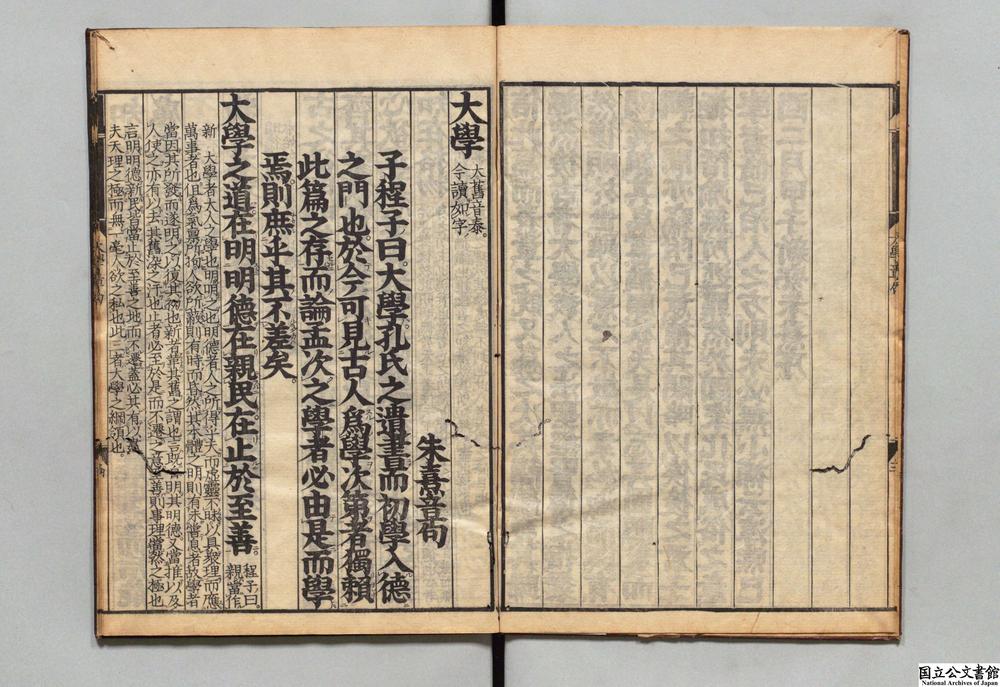 大學
大舊音泰。
今讀如字
朱熹章句
子程子曰。大學孔氏之遺書而初學入德
之門也於今可見古人爲學次第者獨賴
此篇之存而論孟次之學者必由是而學
焉則庶乎其不差矣。
大學之道在明明德在親民在止於至善
程子曰。
親當作
新 大學者大人之學也明明之也明德者人之所得乎天而虛靈不昧以具衆理而應
萬事者也但爲氣稟所拘人欲所蔽則有時而昏然其本體之明則有未嘗息者故學者
當因其所發而遂明之以復其初也新者革其舊之謂也言既自明其明德又當推以及
人使之亦有以去其舊染之汙也止者必至於是而不遷之意至善則事理當然之極也
言明明德新民皆當止於至善之地而不遷蓋必其有以盡
夫天理之極而無一毫人欲之私也此三者大學之綱領也。
国立公文書館
National Archives of Japan